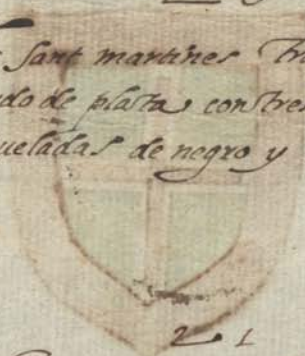 Sant martines Tri
udo de plata con tres
ueladas de negro y
2 1